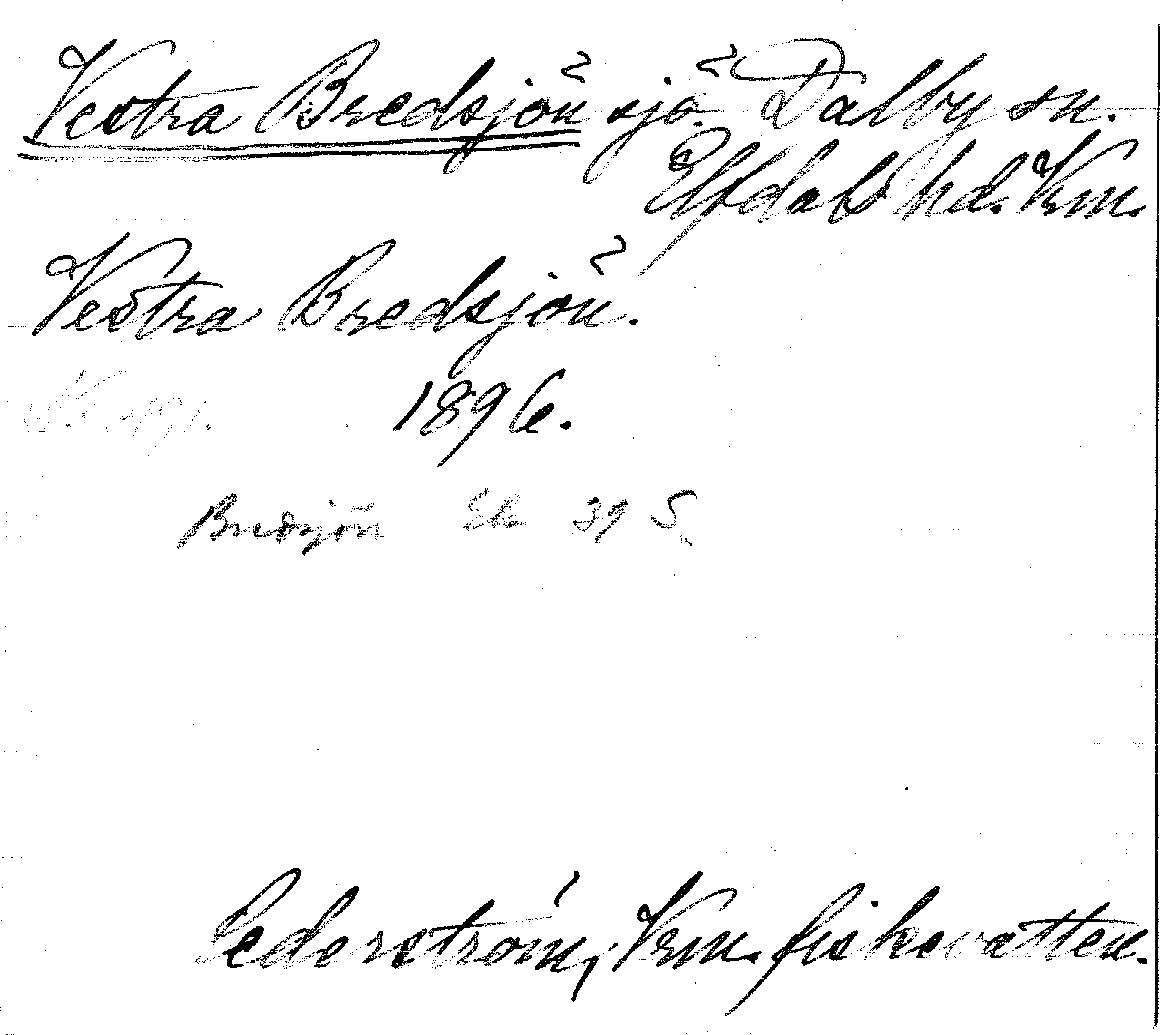 Vestra Bredsjön sjö. Dalby sn.
Elfdals hd. Vrm.
Vestra Bredsjön.
1896.
Bredsjön Ek 39 S
Cederström, Vrm. fiskevatten.